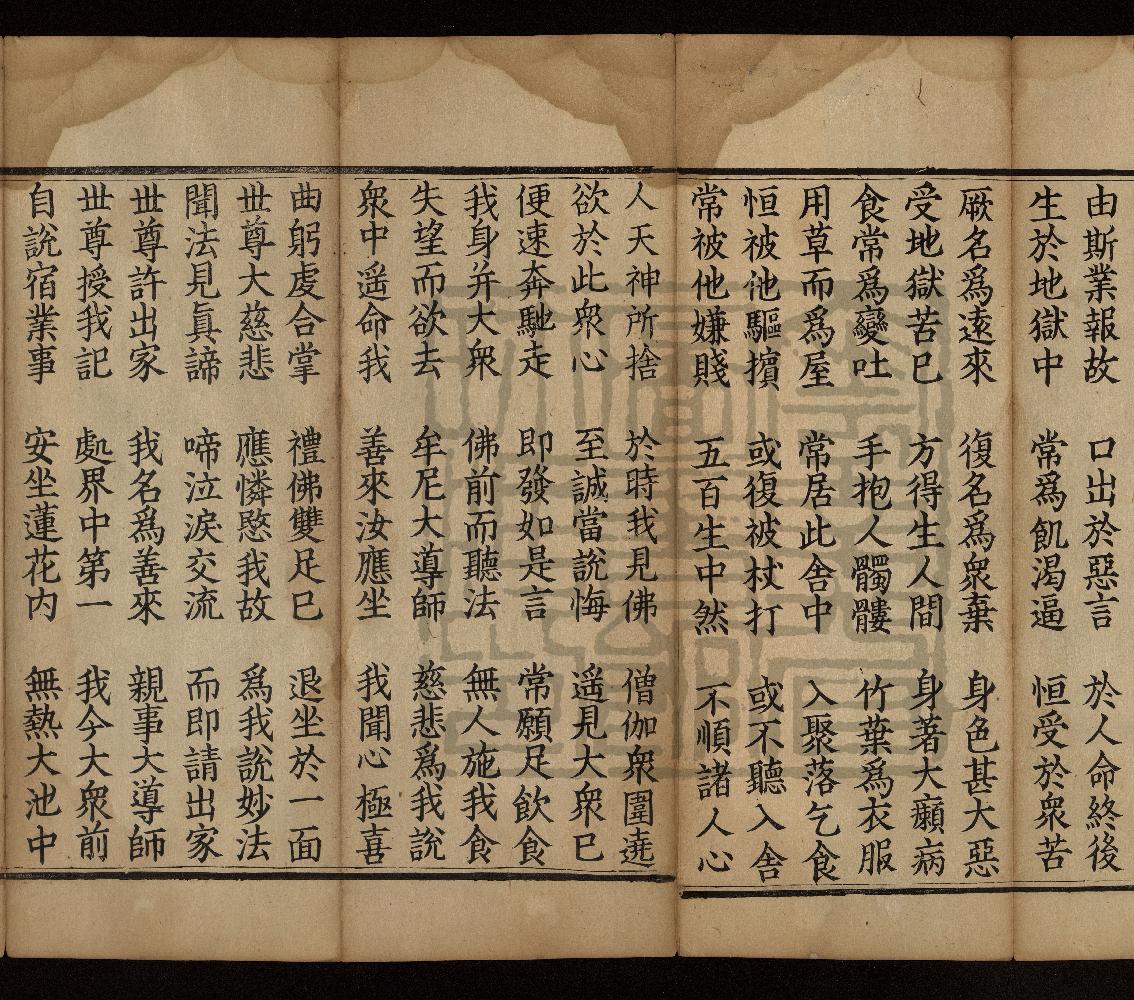 由斯業報故　口出於惡言　於人命終後
生於地獄中　常爲飢渴逼　恒受於衆苦
厥名爲遠來　復名爲衆棄　身色甚大惡
受地獄苦巳　方得生人間　身著大癩病
食常爲變吐　手抱人髑髏　竹葉爲衣服
用草而爲屋　常居此舍中　入聚落乞食
恒被他驅擯　或復被杖打　或不聽入舍
常被他嫌賤　五百生中然　不順諸人心
人天神所捨　於時我見佛　僧伽衆圍遶
欲於此衆心　至誠當說悔　遥見大衆巳
便速奔馳走　即發如是言　常願足飲食
我身并大衆　佛前而聽法　無人施我食
失望而欲去　牟尼大導師　慈悲爲我說
衆中遥命我　善來汝應坐　我聞心極喜
曲躬虔合掌　禮佛雙足巳　退坐於一面
世尊大慈悲　應憐愍我故　爲我說妙法
聞法見眞諦　啼泣淚交流　而即請出家
世尊許出家　我名爲善來　親事大導師
世尊授我記　處界中第一　我今大衆前
自說宿業事　安坐蓮花内　無熱大池中